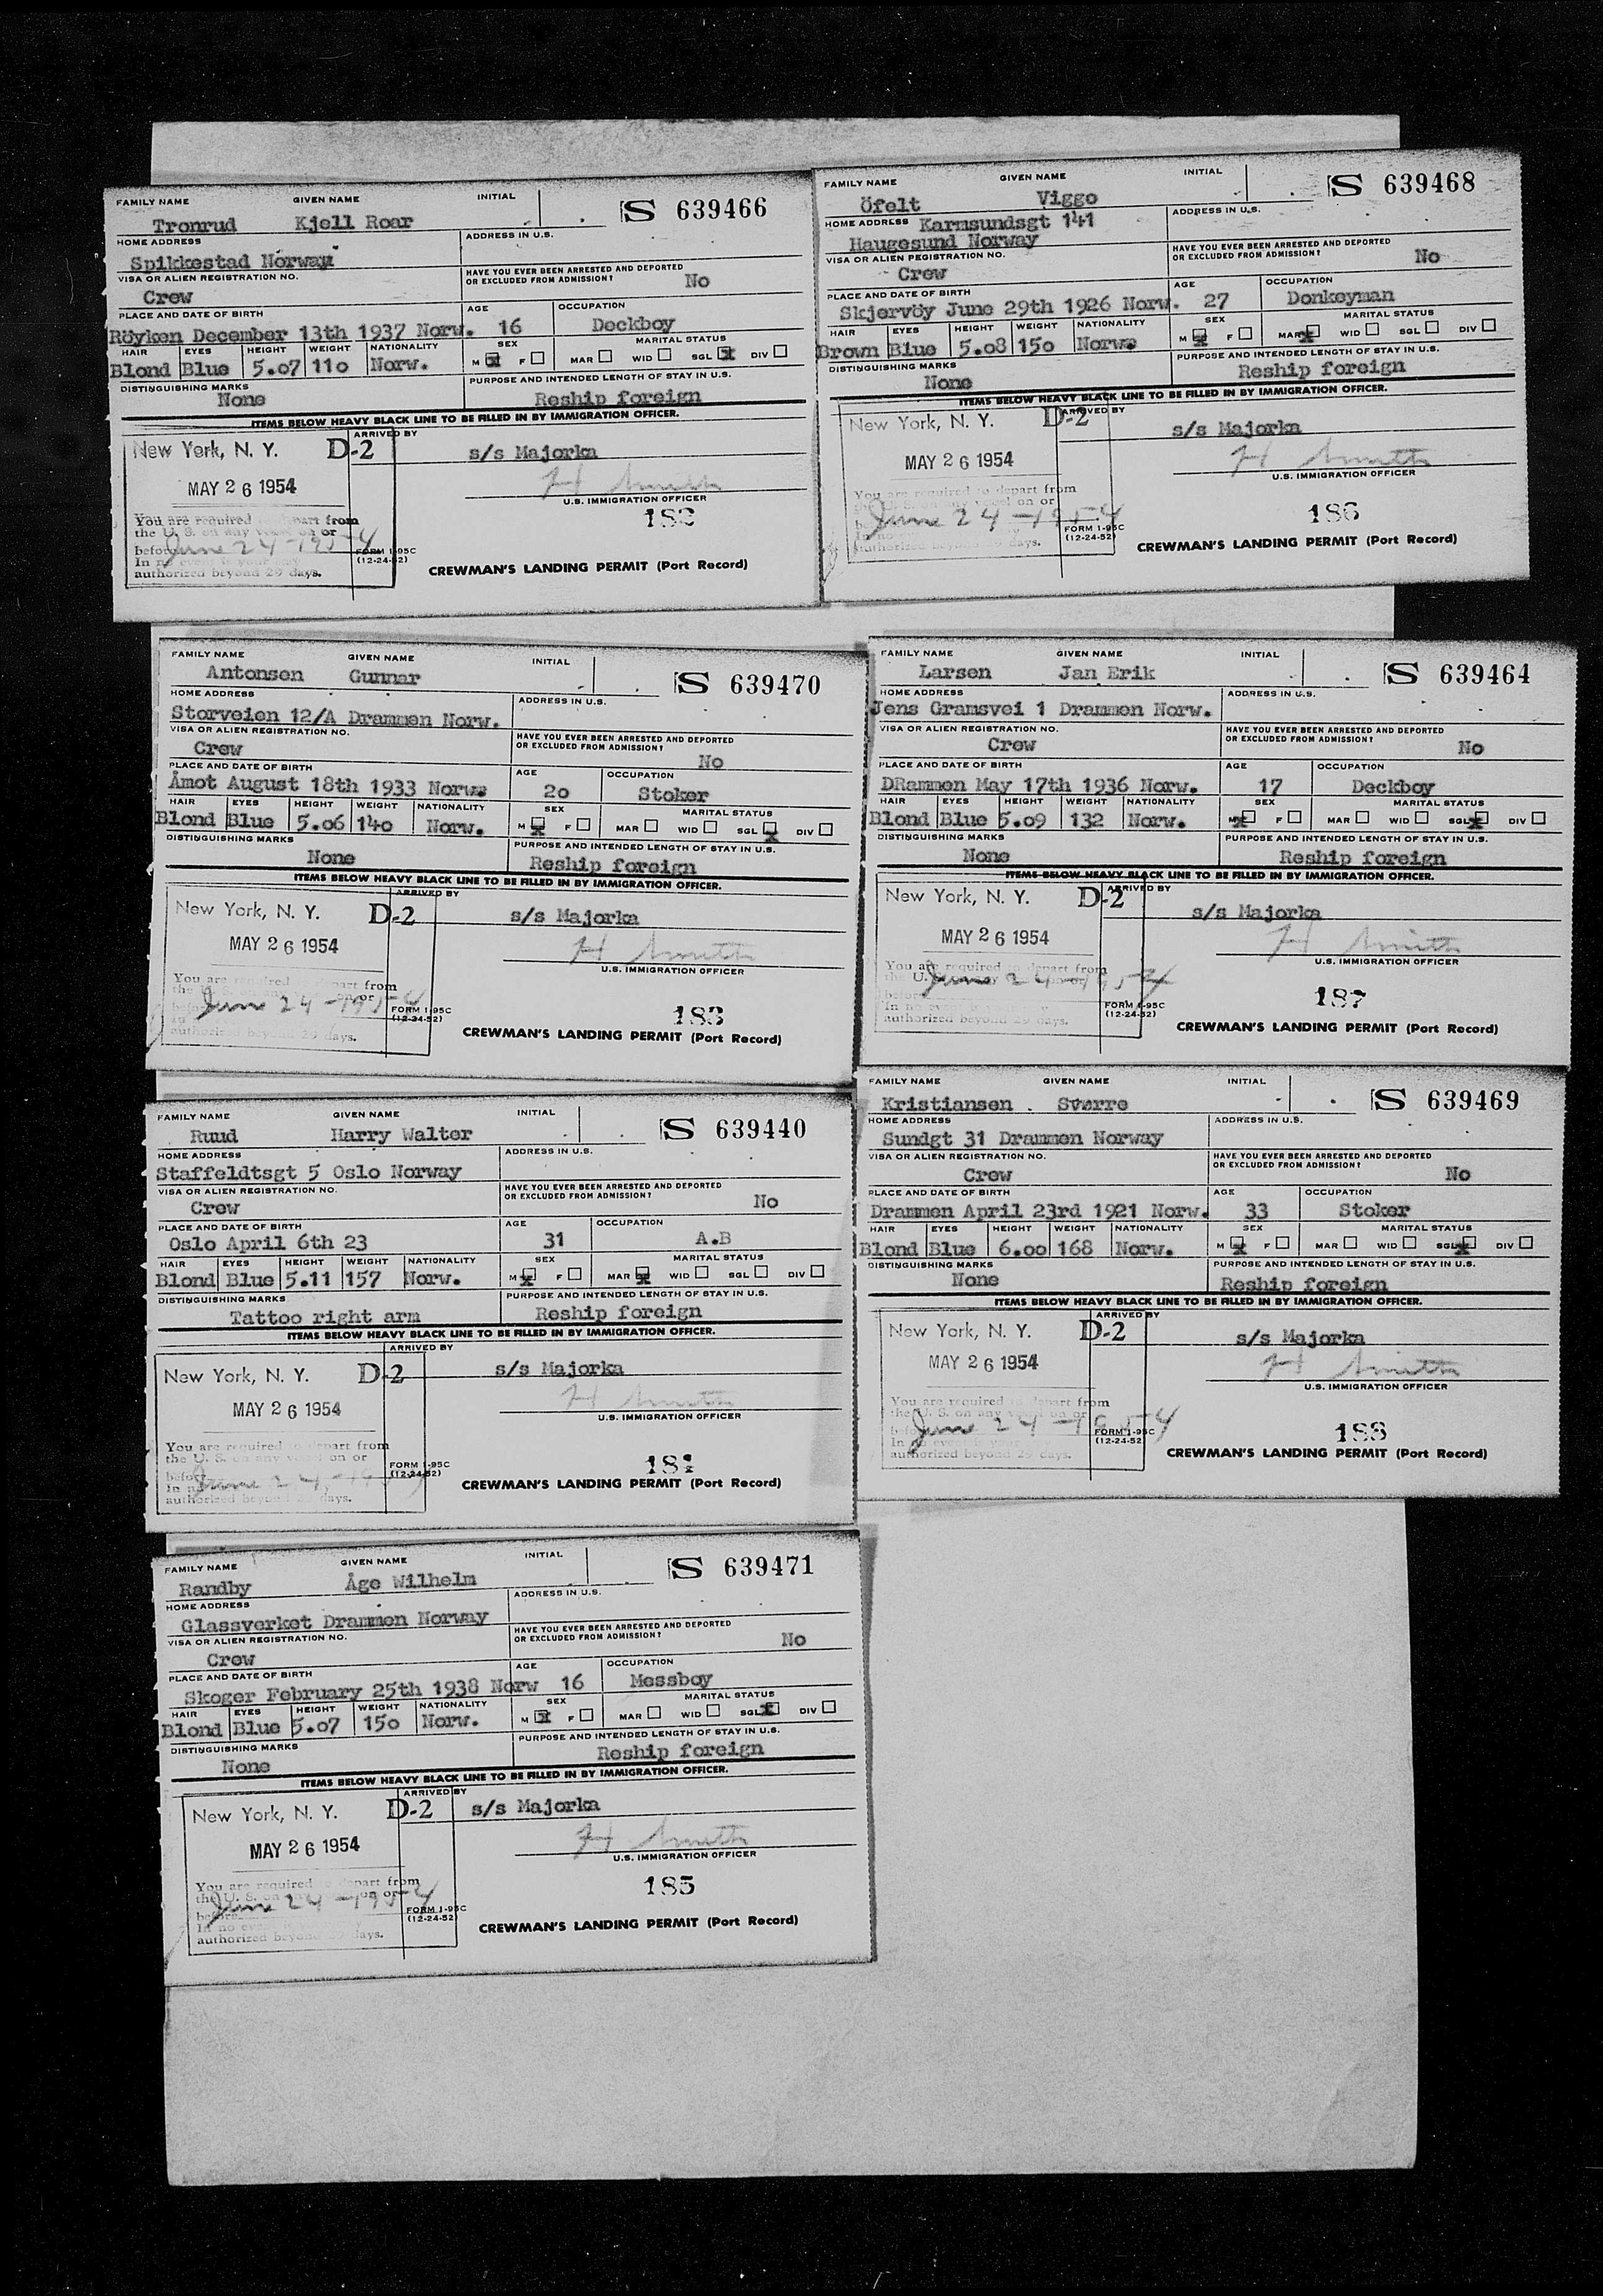 FAMILY NAME GIVEN NAME INITIAL
S 639466
Tronrud Kjell Roar
HOME ADDRESS ADDRESS IN U.S.
Spikkestad Norway
VISA OR ALIEN REGISTRATION NO. HAVE YOU EVER BEEN ARRESTED AND DEPORTED
OR EXCLUDED FROM ADMISSION? No
Crew
PLACE AND DATE OF BIRTH AGE OCCUPATION
Röyken December 13th 1937 Norw. 16 Deckboy
HAIR EYES HEIGHT WEIGHT NATIONALITY SEX MARITAL STATUS
Blond Blue 5.07 110 Norw. M X F MAR WID SGL X DIV
DISTINGUISHING MARKS PURPOSE AND INTENDED LENGTH OF STAY IN U.S.
None Reship foreign
ITEMS BELOW HEAVY BLACK LINE TO BE FILLED IN BY IMMIGRATION OFFICER.
ARRIVED BY
New York, N. Y. D-2 s/s Majorka
MAY 26 1954 H Smith
U.S. IMMIGRATION OFFICER
You are required part from
the U. S. on any on or
before June 24-1954
In
authorized beyond 29 days.
182
FORM I-95C
(12-24-52)
CREWMAN'S LANDING PERMIT (Port Record)
FAMILY NAME GIVEN NAME INITIAL
S 639468
Öfelt Viggo
HOME ADDRESS Karmsundsgt 141 ADDRESS IN U.S.
Haugesund Norway
VISA OR ALIEN REGISTRATION NO. HAVE YOU EVER BEEN ARRESTED AND DEPORTED
OR EXCLUDED FROM ADMISSION? No
Crew
PLACE AND DATE OF BIRTH AGE OCCUPATION
Skjervöy June 29th 1926 Norw. 27 Donkeyman
HAIR EYES HEIGHT WEIGHT NATIONALITY SEX MARITAL STATUS
Brown Blue 5.08 150 Norw. M X F MAR X WID SGL DIV
DISTINGUISHING MARKS PURPOSE AND INTENDED LENGTH OF STAY IN U.S.
None Reship foreign
ITEMS BELOW HEAVY BLACK LINE TO BE FILLED IN BY IMMIGRATION OFFICER.
ARRIVED BY
New York, N. Y. D-2 s/s Majorka
MAY 26 1954 H Smith
U.S. IMMIGRATION OFFICER
You are required to depart from
on or
June 24-1954
authorized beyond days.
186
FORM I-95C
(12-24-52)
CREWMAN'S LANDING PERMIT (Port Record)
FAMILY NAME GIVEN NAME INITIAL
S 639470
Antonsen Gunnar
HOME ADDRESS ADDRESS IN U.S.
Storveien 12/A Drammen Norw.
VISA OR ALIEN REGISTRATION NO. HAVE YOU EVER BEEN ARRESTED AND DEPORTED
OR EXCLUDED FROM ADMISSION?
Crew No
PLACE AND DATE OF BIRTH AGE OCCUPATION
Åmot August 18th 1933 Norw. 20 Stoker
HAIR EYES HEIGHT WEIGHT NATIONALITY SEX MARITAL STATUS
Blond Blue 5.06 140 Norw. M X F MAR WID SGL X DIV
DISTINGUISHING MARKS PURPOSE AND INTENDED LENGTH OF STAY IN U.S.
None Reship foreign
ITEMS BELOW HEAVY BLACK LINE TO BE FILLED IN BY IMMIGRATION OFFICER.
ARRIVED BY
New York, N. Y. D-2 s/s Majorka
MAY 26 1954 H Smith
U.S. IMMIGRATION OFFICER
You are part from
the on or
June 24-1954
days.
183
FORM I-95C
(12-24-52)
CREWMAN'S LANDING PERMIT (Port Record)
FAMILY NAME GIVEN NAME INITIAL
S 639464
Larsen Jan Erik
HOME ADDRESS ADDRESS IN U.S.
Jens Gramsvei 1 Drammen Norw.
VISA OR ALIEN REGISTRATION NO. HAVE YOU EVER BEEN ARRESTED AND DEPORTED
OR EXCLUDED FROM ADMISSION?
Crew No
PLACE AND DATE OF BIRTH AGE OCCUPATION
DRammen May 17th 1936 Norw. 17 Deckboy
HAIR EYES HEIGHT WEIGHT NATIONALITY SEX MARITAL STATUS
Blond Blue 5.09 132 Norw. M X F MAR WID SGL X DIV
DISTINGUISHING MARKS PURPOSE AND INTENDED LENGTH OF STAY IN U.S.
None Reship foreign
ITEMS BELOW HEAVY BLACK LINE TO BE FILLED IN BY IMMIGRATION OFFICER.
ARRIVED BY
New York, N. Y. D-2 s/s Majorka
MAY 26 1954 H Smith
U.S. IMMIGRATION OFFICER
You are required to depart from
the U.
June 24-1954
authorized beyond 29 days.
187
FORM I-95C
(12-24-52)
CREWMAN'S LANDING PERMIT (Port Record)
FAMILY NAME GIVEN NAME INITIAL
S 639440
Ruud Harry Walter
HOME ADDRESS ADDRESS IN U.S.
Staffeldtsgt 5 Oslo Norway
VISA OR ALIEN REGISTRATION NO. HAVE YOU EVER BEEN ARRESTED AND DEPORTED
OR EXCLUDED FROM ADMISSION? No
Crew
PLACE AND DATE OF BIRTH AGE OCCUPATION
Oslo April 6th 23 31 A.B
HAIR EYES HEIGHT WEIGHT NATIONALITY SEX MARITAL STATUS
Blond Blue 5.11 157 Norw. M X F MAR X WID SGL DIV
DISTINGUISHING MARKS PURPOSE AND INTENDED LENGTH OF STAY IN U.S.
Tattoo right arm Reship foreign
ITEMS BELOW HEAVY BLACK LINE TO BE FILLED IN BY IMMIGRATION OFFICER.
ARRIVED BY
New York, N. Y. D-2 s/s Majorka
MAY 26 1954 H Smith
U.S. IMMIGRATION OFFICER
You are required to depart from
the U. S. on any vessel on or
before June 24-195
authorized days.
FORM I-95C
(12-24-52)
CREWMAN'S LANDING PERMIT (Port Record)
FAMILY NAME GIVEN NAME INITIAL
S 639469
Kristiansen Sverre
HOME ADDRESS ADDRESS IN U.S.
Sundgt 31 Drammen Norway
VISA OR ALIEN REGISTRATION NO. HAVE YOU EVER BEEN ARRESTED AND DEPORTED
OR EXCLUDED FROM ADMISSION?
Crew No
PLACE AND DATE OF BIRTH AGE OCCUPATION
Drammen April 23rd 1921 Norw. 33 Stoker
HAIR EYES HEIGHT WEIGHT NATIONALITY SEX MARITAL STATUS
Blond Blue 6.00 168 Norw. M X F MAR WID SGL X DIV
DISTINGUISHING MARKS PURPOSE AND INTENDED LENGTH OF STAY IN U.S.
None Reship foreign
ITEMS BELOW HEAVY BLACK LINE TO BE FILLED IN BY IMMIGRATION OFFICER.
ARRIVED BY
New York, N. Y. D-2 s/s Majorka
MAY 26 1954 H Smith
U.S. IMMIGRATION OFFICER
You are required depart from
the U. S. on any vessel on or
June 24-1954
In
authorized beyond 29 days.
188
FORM I-95C
(12-24-52)
CREWMAN'S LANDING PERMIT (Port Record)
FAMILY NAME GIVEN NAME INITIAL
S 639471
Randby Åge Wilhelm
HOME ADDRESS ADDRESS IN U.S.
Glassverket Drammen Norway
VISA OR ALIEN REGISTRATION NO. HAVE YOU EVER BEEN ARRESTED AND DEPORTED
OR EXCLUDED FROM ADMISSION? No
Crew
PLACE AND DATE OF BIRTH AGE OCCUPATION
Skoger February 25th 1938 Norw 16 Messboy
HAIR EYES HEIGHT WEIGHT NATIONALITY SEX MARITAL STATUS
Blond Blue 5.07 150 Norw. M X F MAR WID SGL X DIV
DISTINGUISHING MARKS PURPOSE AND INTENDED LENGTH OF STAY IN U.S.
None Reship foreign
ITEMS BELOW HEAVY BLACK LINE TO BE FILLED IN BY IMMIGRATION OFFICER.
ARRIVED BY
New York, N. Y. D-2 s/s Majorka
MAY 26 1954 H Smith
U.S. IMMIGRATION OFFICER
You are required part from
the U. S. on or
before June 24-1954
In no
authorized beyond 29 days.
185
FORM I-95C
(12-24-52)
CREWMAN'S LANDING PERMIT (Port Record)